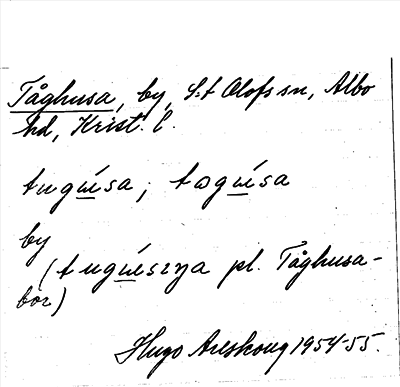 Tåghusa, by, S:t Olofs sn, Albo
hd, Krist. l.
tugu̲ísa; tɷgu̲ísa
by
(tugu̲ísɪŋa pl. Tåghusa-
bor)
Hugo Areskoug 1954-55.